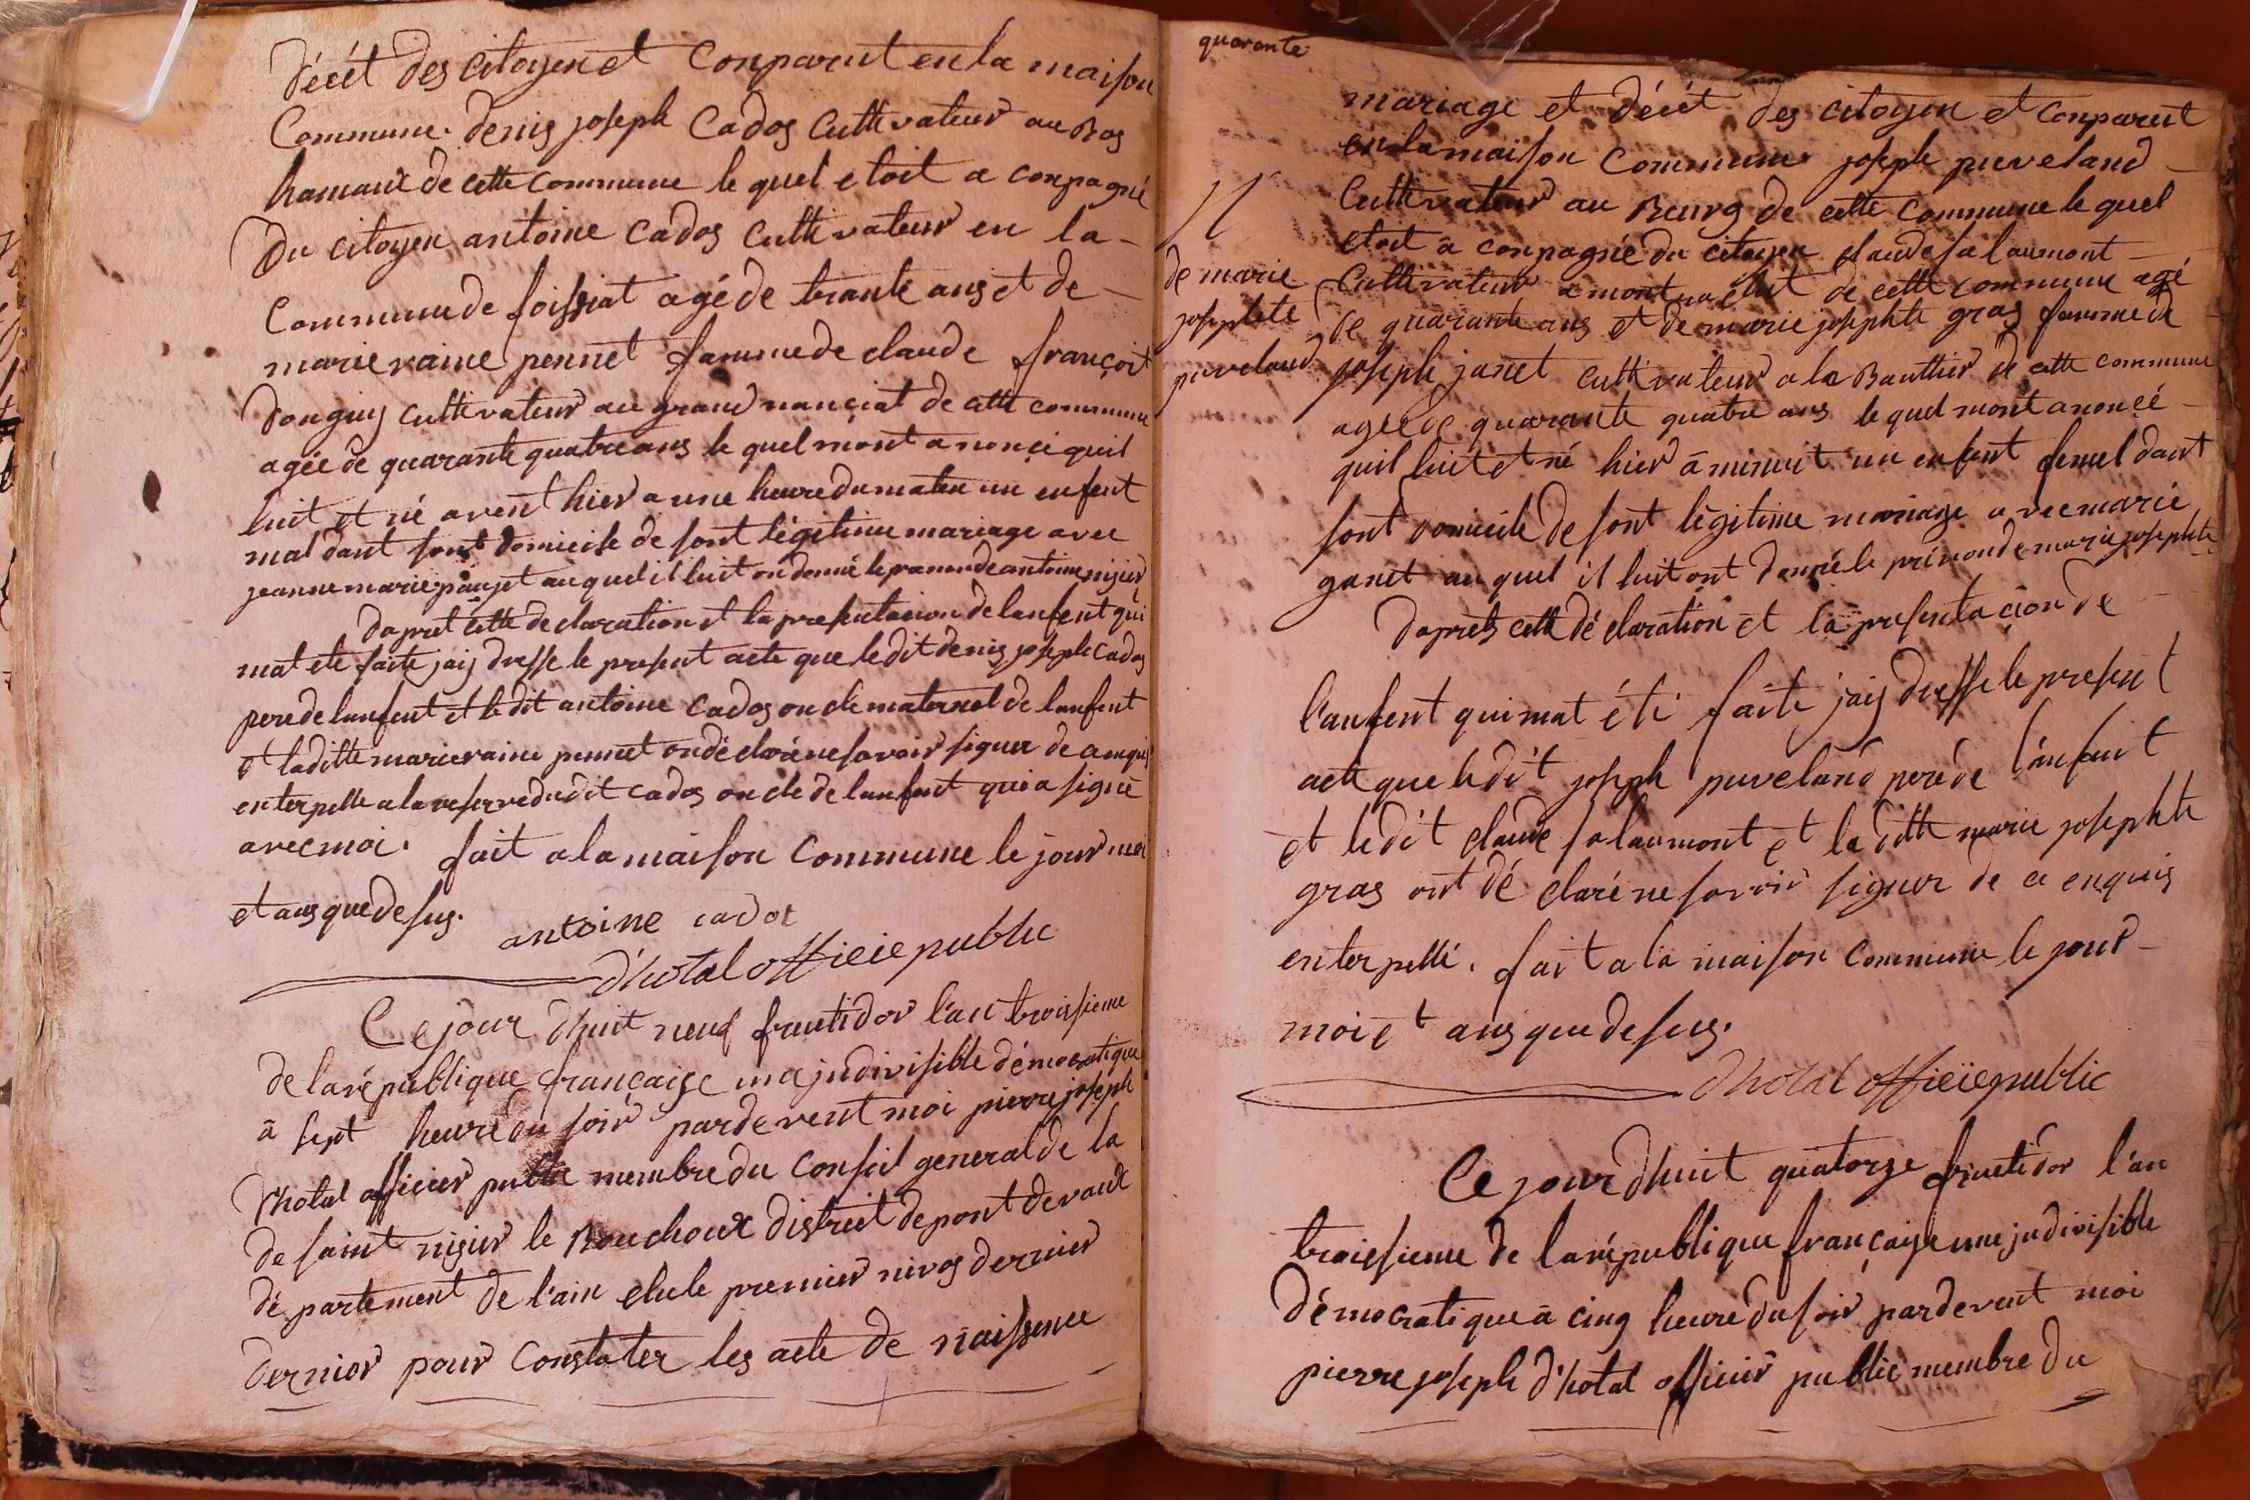 décét des citoyen et conparut en la maison
Commune. denis joseph Cados Cultivateur au Bas
hamaut de cette commune le quel etoit a conpagné
Du citoyen antoine Cados Cultivateur en la
Commune de foissiat agé de trante ans et de
marie raine pennet famme de claude françoit
donguy cultivateur au grand nanciat de cette commune
agée de quarante quatre ans le quel mont anonçé quil
luit et né avent hier a une heure du matin un enfent
mal dant sont domicile de sont légitime mariage avec
jeanne marie paujet au quel il luit on donné le prenon de antoine nisier
dapret cette declaration et la presentacion de lanfent qui
mat ete faite jaij dresse le present acte que le dit denis joseph Cados
pere de lanfent et le dit antoine Cados oncle maternel de lanfent
et la ditte marie raine pennet on déclaré ne savoir signer de ce enquis
enterpelle a la reserve du dit cados oncle de lanfent qui a signé
avec moi. fait a la maison commune le jour moi
et ans que desus.
antoine cados
d'hotal officie public
Ce jour dhuit neuf fructidor l'an troissieme
de la république française une jndivisible démocratique
à sept heure du soir pardevent moi pierre joseph
d'hotal officier public membre du Conseil general de la
de saint nisier le Bouchoux district de pont devaux
département de l'ain elu le premier nivos dernier
dernier pour constater les acte de naissence
quarante
mariage et décét des citoyen et conparut
en la maison commune joseph puveland
Cultivateur au Bourg de cette commune le quel
etoit a conpagné du citoyen claude salaumont
N
de marie
josephte
puveland
Cultivateur a de cette commune agé
de quarante ans et de marie josephte gras famme de
joseph janet cultivateur a la Bauthier de cette commune
agée de quarante quatre ans le quel mont anonçé
quil luit et né hier à minuit un enfent femel dant
sont domicile de sont légitime mariage avec marie
ganet au quel il luit ont donné le prénon de marie josephte
daprets cette déclaration et la presentacion de
l'anfent qui mat été faite jaij dresse le present
acte que le dit joseph puveland pere de l'enfent
et le dit claude salaumont et la ditte marie josephte
gras ont déclaré ne savoir signer de ce enquis
enterpellé. fait a la maison commune le jour
moi et ans que desus.
d'hotal officie public
Ce jour dhuit quatorze fructidor l'an
troissieme de la république française une jndivisible
démocratique à cinq heure du soir pardevent moi
pierre joseph d'hotal officier public membre du